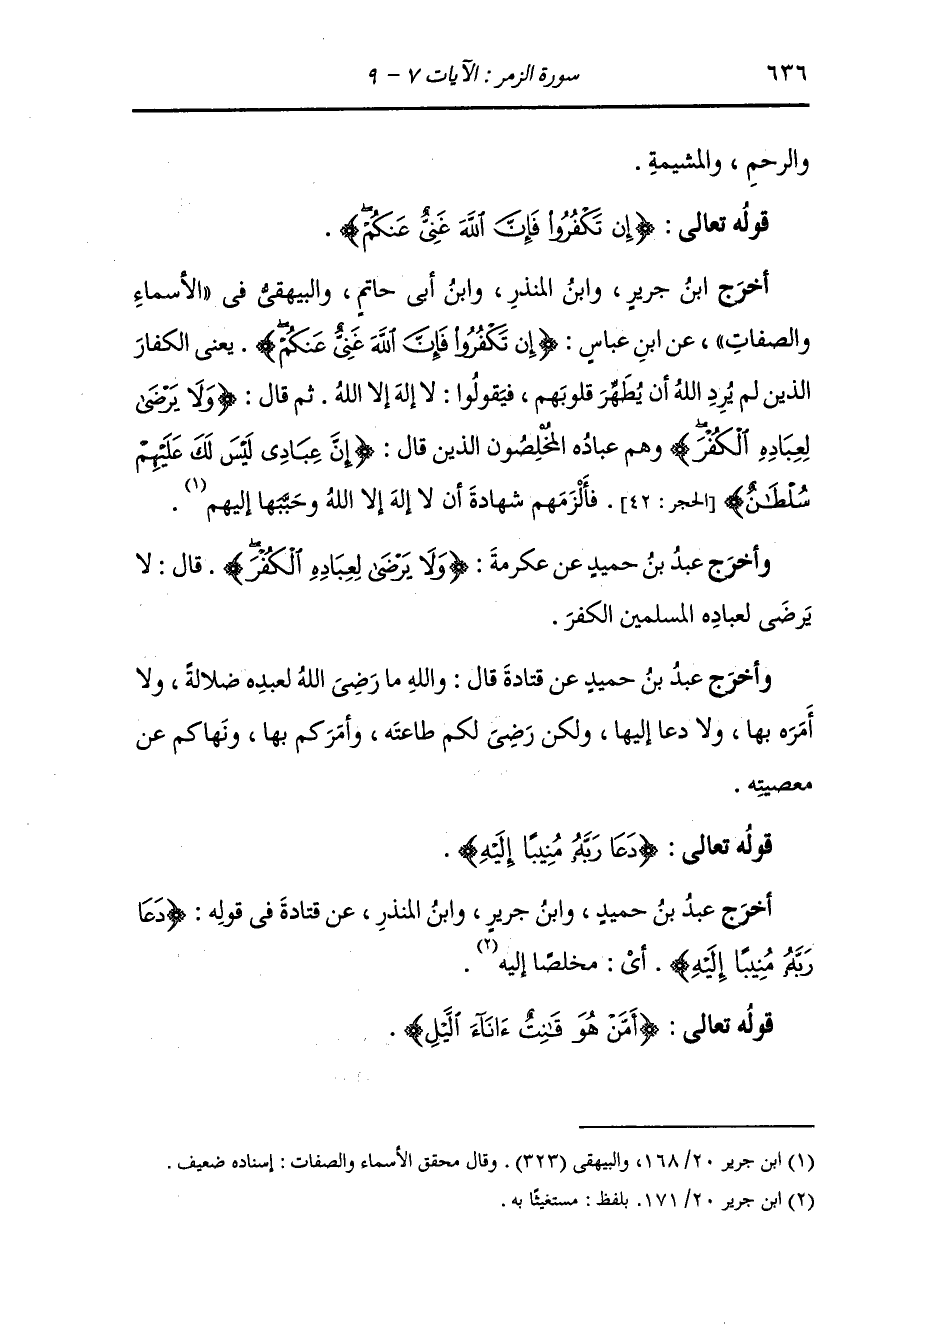 ٦٣٦ سورة الزمر : الآيات ٧ - ٩
والرحمِ ، والمشيمةِ .
قولُه تعالى : ﴿إِن تَكْفُرُوا۟ فَإِنَّ ٱللَّهَ غَنِىٌّ عَنكُمْۖ﴾ .
أخرَج ابنُ جريرٍ ، وابنُ المنذرِ ، وابنُ أبى حاتمٍ ، والبيهقىُّ فى «الأسماءِ
والصفاتِ» ، عن ابنِ عباسٍ : ﴿إِن تَكْفُرُوا۟ فَإِنَّ ٱللَّهَ غَنِىٌّ عَنكُمْۖ﴾ . يعنى الكفارَ
الذين لم يُرِدِ اللهُ أن يُطَهِّرَ قلوبَهم ، فيَقولُوا : لا إلهَ إلا اللهُ . ثم قال : ﴿وَلَا يَرْضَىٰ
لِعِبَادِهِ ٱلْكُفْرَۖ﴾ وهم عبادُه المُخْلِصُون الذين قال : ﴿إِنَّ عِبَادِى لَيْسَ لَكَ عَلَيْهِمْ
سُلْطَٰنٌ﴾ [الحجر : ٤٢] . فأَلْزَمَهم شهادةَ أن لا إلهَ إلا اللهُ وحَبَّبَها إليهم(١) .
وأخرَج عبدُ بنُ حميدٍ عن عكرمةَ : ﴿وَلَا يَرْضَىٰ لِعِبَادِهِ ٱلْكُفْرَۖ﴾ . قال : لا
يَرضَى لعبادِه المسلمين الكفرَ .
وأخرَج عبدُ بنُ حميدٍ عن قتادةَ قال : واللهِ ما رَضِىَ اللهُ لعبدِه ضلالةً ، ولا
أَمَرَه بها ، ولا دعا إليها ، ولكن رَضِىَ لكم طاعتَه ، وأمَرَكم بها ، ونَهاكم عن
معصيتِه .
قولُه تعالى : ﴿دَعَا رَبَّهُۥ مُنِيبًا إِلَيْهِ﴾ .
أخرَج عبدُ بنُ حميدٍ ، وابنُ جريرٍ ، وابنُ المنذرِ ، عن قتادةَ فى قولِه : ﴿دَعَا
رَبَّهُۥ مُنِيبًا إِلَيْهِ﴾ . أىْ : مخلصًا إليه(٢) .
قولُه تعالى : ﴿أَمَّنْ هُوَ قَٰنِتٌ ءَانَآءَ ٱلَّيْلِ﴾ .
(١) ابن جرير ٢٠/ ١٦٨، والبيهقى (٣٢٣) . وقال محقق الأسماء والصفات : إسناده ضعيف .
(٢) ابن جرير ٢٠/ ١٧١. بلفظ : مستغيثًا به .